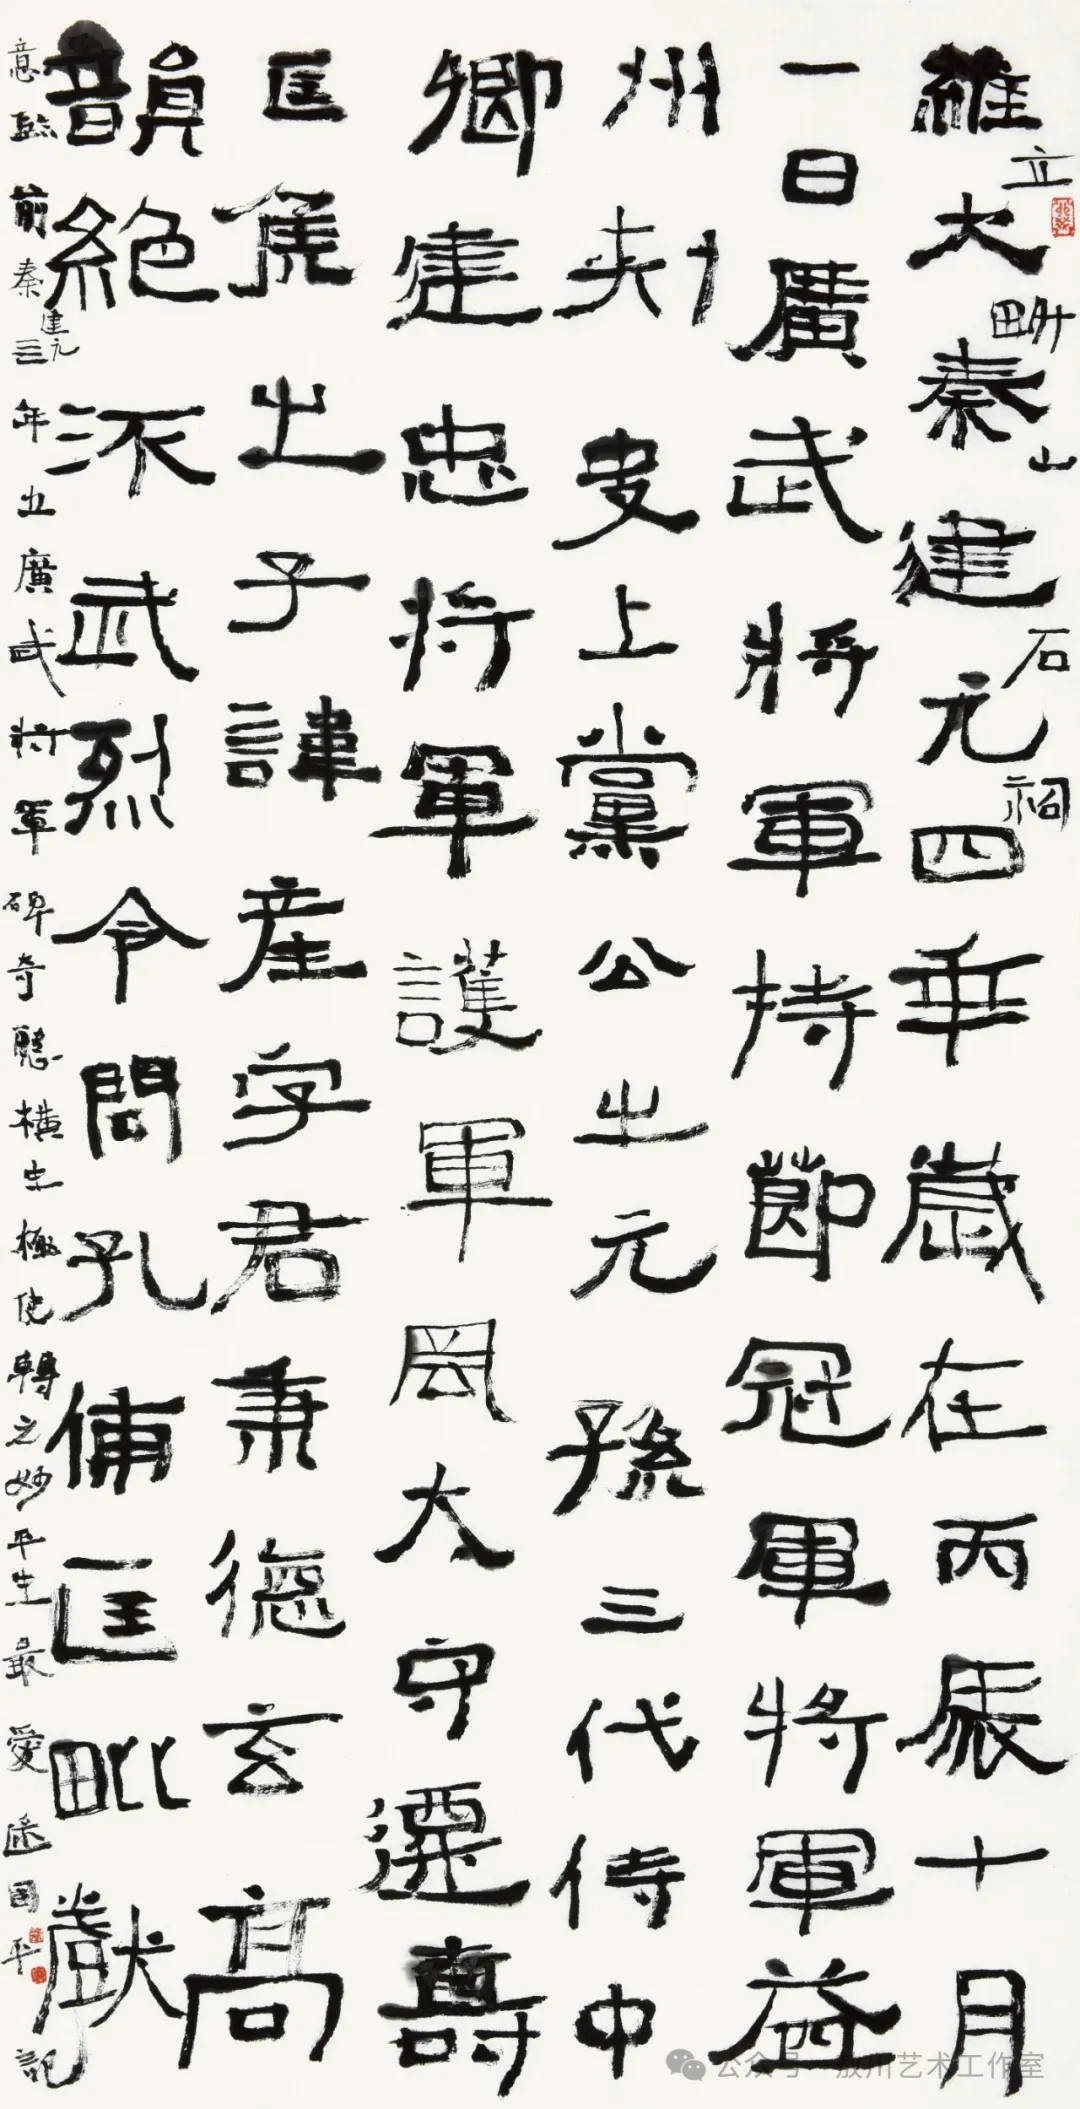 立畊山石祠
維大秦建元四年歲在丙辰十月
一日廣武將軍持節冠軍將軍益
州刺史上黨公之元孫三代侍中
卿建忠將軍護軍太守遷壽
匡侯之子諱產字君秉德玄高
韻絕武烈令問孔脩匡毗獻
意臨前秦建元三年立廣武將軍碑奇態橫出極使轉之妙平生最愛國平記
公众号 州艺术工作室